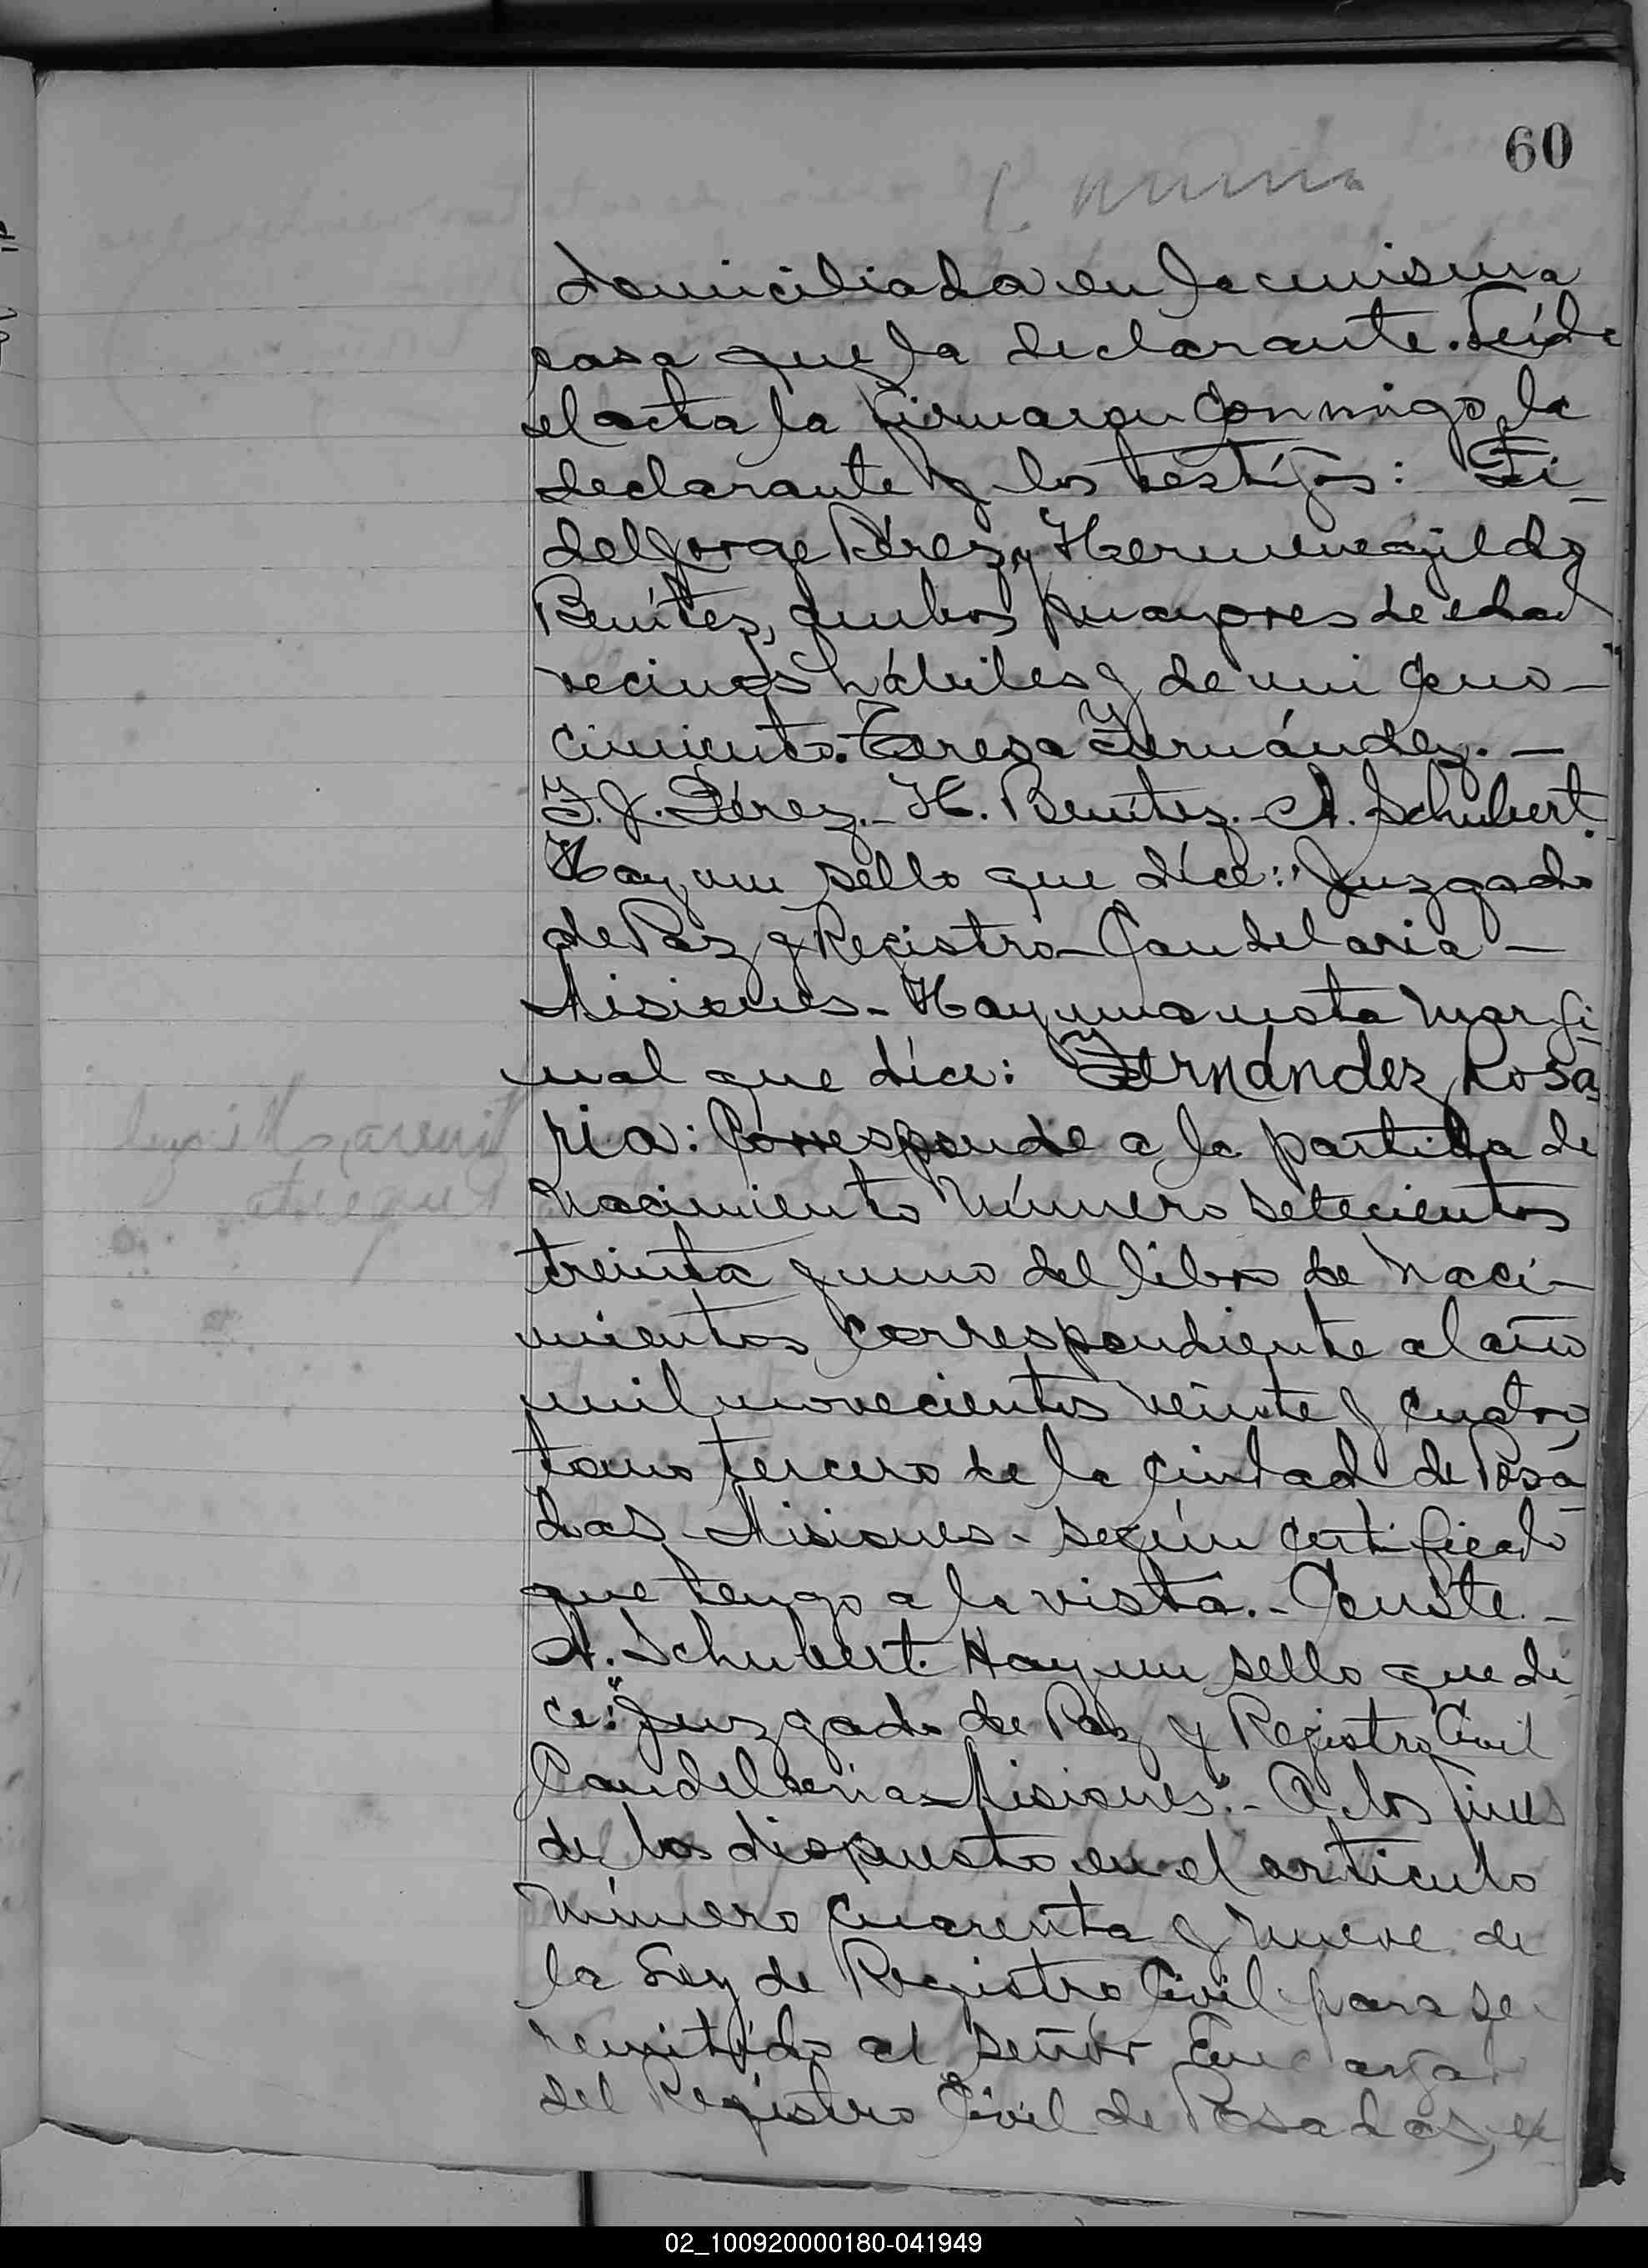 60
domiciliada en la misma
casa que la declarante. Leída
el acta la firmaron conmigo la
declarante y los testigos: Fi-
del Jorge Pérez y Hermenegildo
Benítez, ambos mayores de edad
vecinos hábiles y de mi cono-
cimiento. Teresa Fernández. —
F. J. Pérez. - H. Benítez. - A. Schubert.
Hay un sello que díce: "Juzgado
de Paz y Registro - Candelaria -
Misiones - Hay una nota margi-
nal que díce: Fernández Rosa-
ria: Corresponde a la partida de
nacimiento número setecientos
treinta y uno del libro de naci-
mientos correspondiente al año
mil novecientos veinte y cuatro
tomo tercero de la ciudad de Posa-
das - Misiones - según certificado
que tengo a la vista. - Conste. -
A. Schubert. Hay un sello que di-
ce: "Juzgado de Paz y Registro Civil
Candelaria - Misiones". - A los fines
de los dispuesto en el artículo
número cuarenta y nueve de
la Ley de Registro Civil para se
remitido al señor Encarga
del Registro Civil de Posadas, ex
02_100920000180-041949